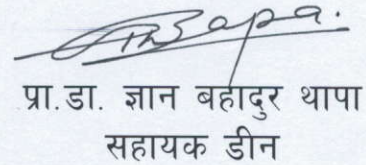 प्रा.डा. ज्ञान बहादुर थापा
सहायक डीन